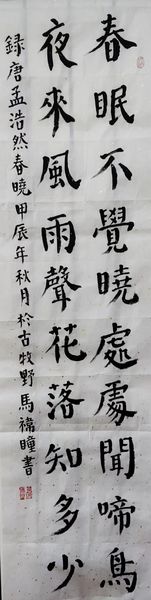 春眠不覺曉處處聞啼鳥
夜來風雨聲花落知多少
錄唐孟浩然春曉甲辰年秋月於古牧野馬禕瞳書